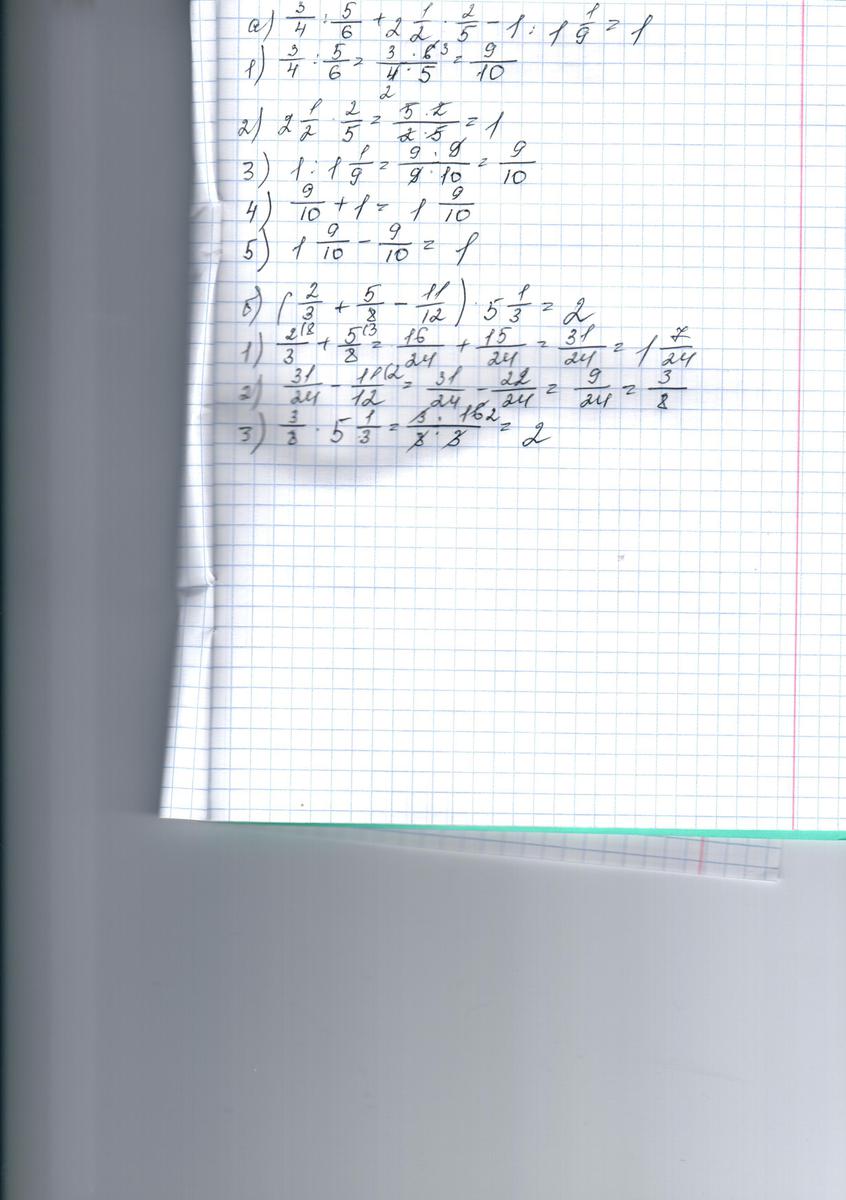 а) 3/4 : 5/6 + 2 1/2 · 2/5 − 1 : 1 1/9 = 1
1) 3/4 : 5/6 = 3 · 6 3/4 · 5 2 = 9/10
2) 2 1/2 · 2/5 = 5 · 2/2 · 5 = 1
3) 1 : 1 1/9 = 9 · 9/9 · 10 = 9/10
4) 9/10 + 1 = 1 9/10
5) 1 9/10 − 9/10 = 1
б) (2/3 + 5/8 − 11/12) · 5 1/3 = 2
1) 2(8/3 + 5(3/8 = 16/24 + 15/24 = 31/24 = 1 7/24
2) 31/24 − 11(2/12 = 31/24 − 22/24 = 9/24 = 3/8
3) 3/8 · 5 1/3 = 3 · 16 2/8 · 3 = 2